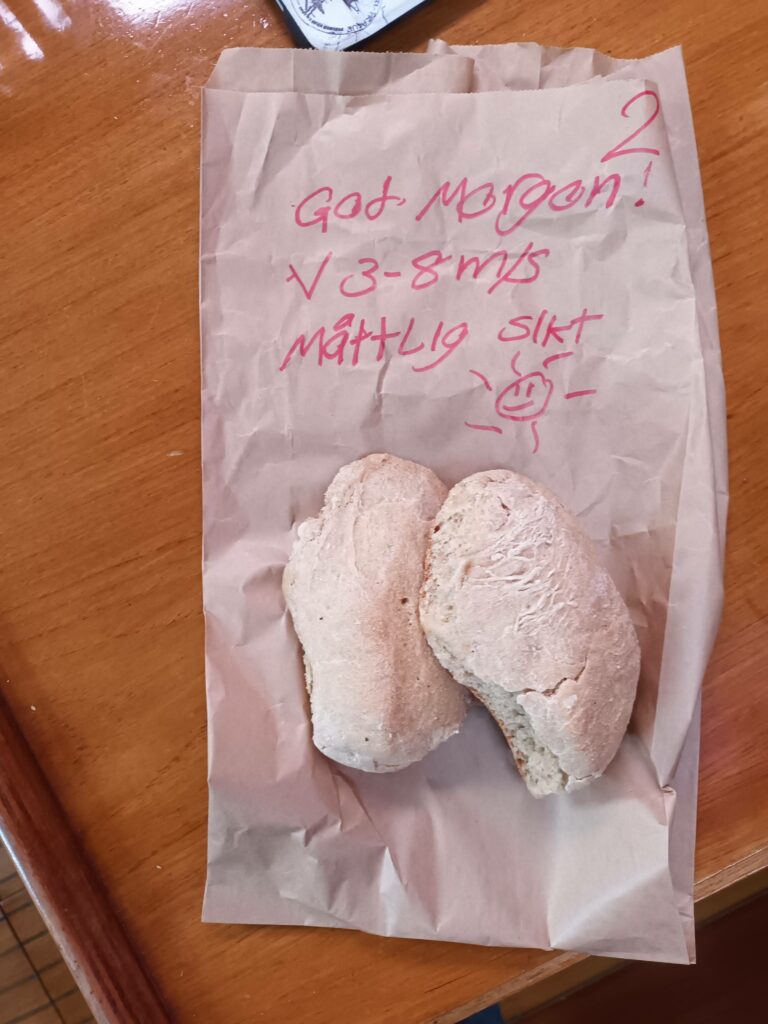 2
God Morgon!
V 3-8 m/s
Måttlig sikt